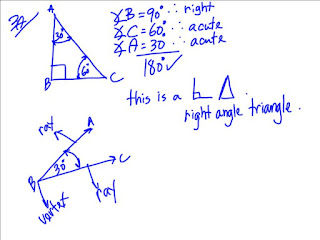 A
∡B = 90° ∴ right
∡C = 60° ∴ acute
∡A = 30 ∴ acute
180° ✓
30°
60°
B
C
this is a
right angle triangle.
A
ray
C
30°
B
ray
vertex